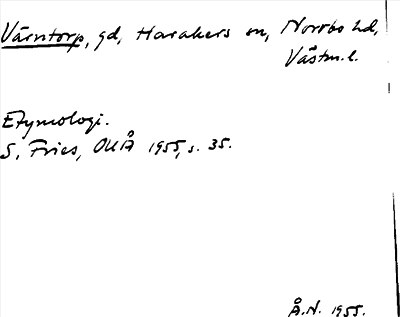 Värntorp, gd, Harakers sn, Norrbo hd,
Västm. l.
Etymologi.
S. Fries, OUÅ 1955, s. 35.
Å.N. 1955.